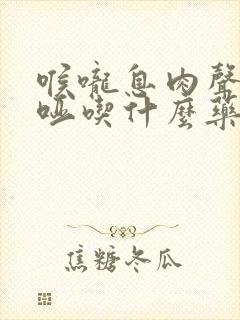 喉嚨息肉聲
啞喫什麼藥
焦糖冬瓜